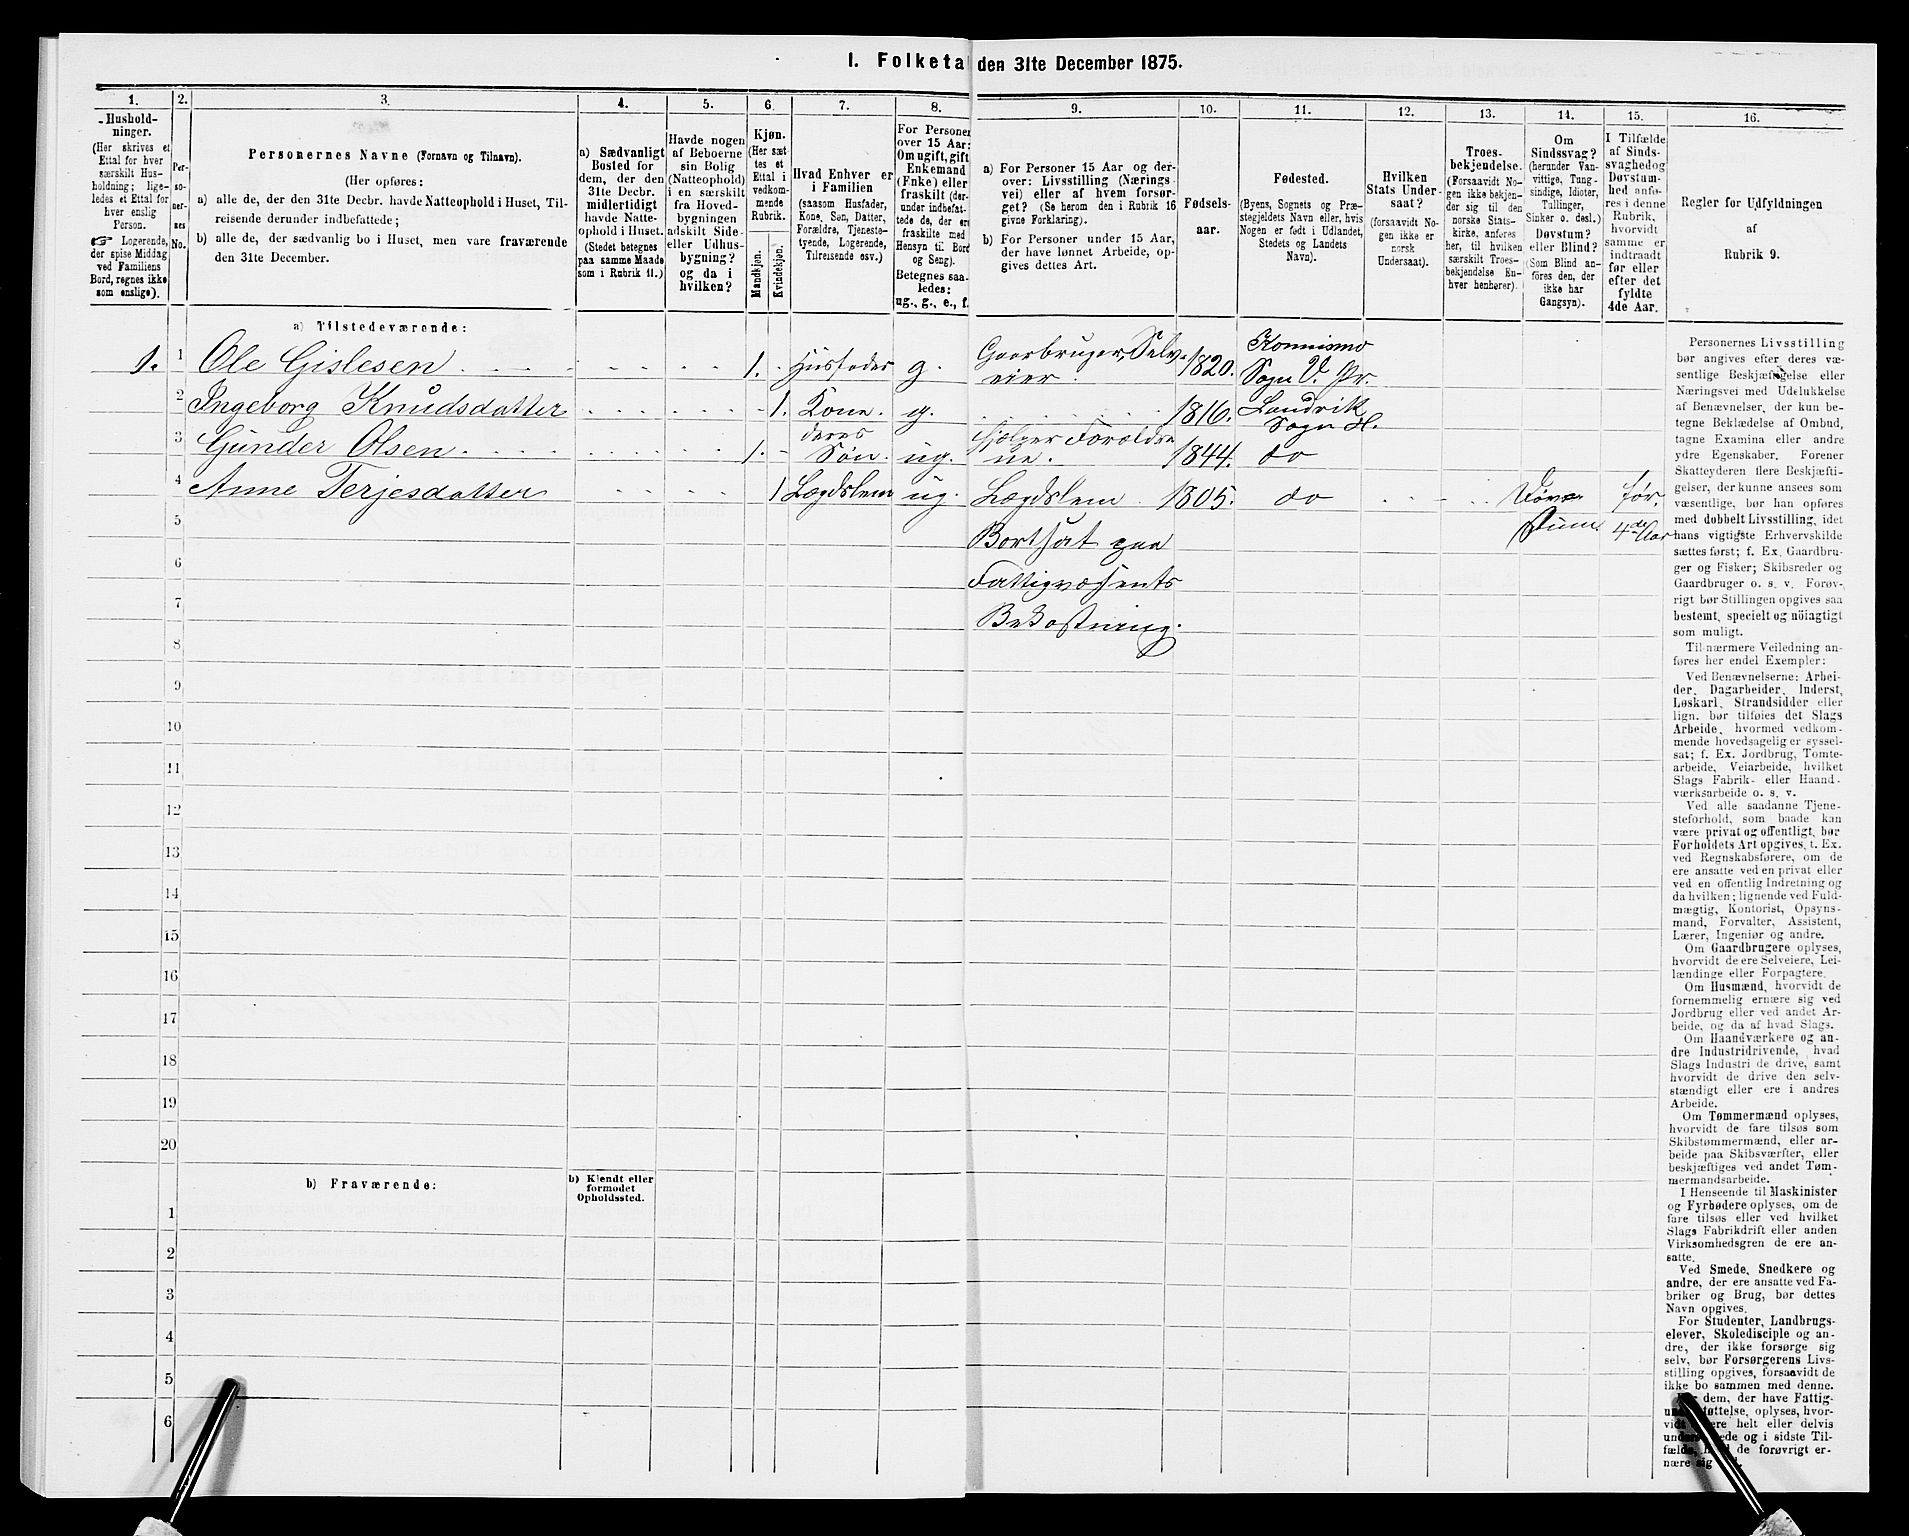 I. Folketal den 31te December 1875.
1. 2. 3. 4. 5. 6. 7. 8. 9. 10. 11. 12. 13. 14. 15. 16.
Hushold-
ninger.
(Her skrives et
Ettal for hver
særskilt Hus-
holdning; lige-
ledes et Ettal for
hver enslig
Person.
☞ Logerende,
der spise Middag
ved Familiens
Bord, regnes ikke
som enslige).
Per-
so-
ner-
nes
No.
Personernes Navne (Fornavn og Tilnavn).
(Her opføres:
a) alle de, der den 31te Decbr. havde Natteophold i Huset, Til-
reisende derunder indbefattede;
b) alle de, der sædvanlig bo i Huset, men vare fraværende
den 31te December.
a) Sædvanligt
Bosted for
dem, der den
31te Decbr.
midlertidigt
havde Natte-
ophold i Huset.
(Stedet betegnes
paa samme Maade
som i Rubrik 11.)
Havde nogen
af Beboerne
sin Bolig
(Natteophold)
i en særskilt
fra Hoved-
bygningen
adskilt Side-
eller Udhus-
bygning?
og da i
hvilken?
Kjøn.
(Her sæt-
tes et
Ettal i
vedkom-
mende
Rubrik.
Mandkjøn.
Kvindekjøn.
Hvad Enhver er
i Familien
(saasom Husfader,
Kone, Søn, Datter,
Forældre, Tjeneste-
tyende, Logerende,
Tilreisende osv.)
For Personer
over 15 Aar:
Om ugift, gift
Enkemand
(Enke) eller
fraskilt (der-
under indbefat-
tede de, der ere
fraskilte med
Hensyn til Bord
og Seng).
Betegnes saa-
ledes:
ug., g., e., f.
a) For Personer 15 Aar og der-
over: Livsstilling (Nærings-
vei) eller af hvem forsør-
get? (Se herom den i Rubrik 16
givne Forklaring).
b) For Personer under 15 Aar,
der have lønnet Arbeide, op-
gives dettes Art.
Fødsels-
aar.
Fødested.
(Byens, Sognets og Præ-
stegjeldets Navn eller, hvis
Nogen er født i Udlandet,
Stedets og Landets
Navn).
Hvilken
Stats Under-
saat?
(forsaavidt No-
gen ikke er
norsk
Undersaat).
Troes-
bekjendelse.
(Forsaavidt No-
gen ikke bekjen-
der sig til den
norske Stats-
kirke, anføres
her, til hvilken
særskilt Troes-
bekjendelse En-
hver henhører).
Om
Sindssvag?
(herunder Van-
vittige, Tung-
sindige, Idioter,
Tullinger,
Sinker o. desl.)
Døvstum?
eller Blind?
(Som Blind an-
føres den, der
ikke har
Gangsyn).
I Tilfælde
af Sinds-
svaghed og
Døvstum-
hed anfø-
res i denne
Rubrik,
hvorvidt
samme er
indtraadt
før eller
efter det
fyldte
4de Aar.
Regler for Udfyldningen
af
Rubrik 9.
a) Tilstedeværende:
1. 1 Ole Gislesen 1. Husfader g. Gaarbruger, Selv- 1820. Konnismo
eier. Sogn V. Pr.
2 Ingeborg Knudsdatter 1. Kone. g. 1816. Landvik
Sogn H.
3 Gunder Olsen 1. deres Søn. ug. hjelper Forældre 1844. do
ne.
4 Anne Terjesdatter 1 Lægdslem ug. Lægdslem 1805. do Døve før.
5 Bortsat paa Stum. 4de Aar
6 Fattigvæsents
7 Bekostning.
8
9
10
11
12
13
14
15
16
17
18
19
20
b) Fraværende:
b) Kjendt eller
formodet
Opholdssted.
1
2
3
4
5
6
Personernes Livsstilling
bør angives efter deres væ-
sentlige Beskjæftigelse eller
Næringsvei med Udelukkelse
af Benævnelser, der kun be-
tegne Beklædelse af Ombud,
tagne Examina eller andre
ydre Egenskaber. Forener
Skatteyderen flere Beskjæfti-
gelser, der kunne ansees som
væsentlige, bør han opføres
med dobbelt Livsstilling, idet
hans vigtigste Erhvervskilde
sættes først; f. Ex. Gaardbru-
ger og Fisker; Skibsreder og
Gaardbruger o. s. v. Forøv-
rigt bør Stillingen opgives saa
bestemt, specielt og nöiagtigt
som muligt.
Til nærmere Veiledning an-
føres her endel Exempler:
Ved Benævnelserne: Arbei-
der, Dagarbeider, Inderst,
Løskarl, Strandsidder eller
lign. bør tilføies det Slags
Arbeide, hvormed vedkom-
mende hovedsagelig er syssel-
sat; f. Ex. Jordbrug, Tomte-
arbeide, Veiarbeide, hvilket
Slags Fabrik- eller Haand-
værksarbeide o. s. v.
Ved alle saadanne Tjene-
steforhold, som baade kan
være privat og offentligt, bør
Forholdets Art opgives, t. Ex.
ved Regnskabsførere, om de
ere ansatte ved en privat eller
ved en offentlig Indretning og
da hvilken; lignende ved Fuld-
mægtig, Kontorist, Opsyns-
mand, Forvalter, Assistent,
Lærer, Ingeniør og andre.
Om Gaardbrugere oplyses,
hvorvidt de ere Selveiere, Lei-
lændinge eller Forpagtere.
Om Husmænd, hvorvidt de
fornemmelig ernære sig ved
Jordbrug eller ved andet Ar-
beide, og da af hvad Slags.
Om Haandværkere og an-
dre Industridrivende, hvad
Slags Industri de drive, samt
hvorvidt de drive den selv-
stændigt eller ere i andres
Arbeide.
Om Tømmermænd oplyses,
hvorvidt de fare tilsøs som
Skibstømmermænd, eller ar-
beide paa Skibsværfter, eller
beskjæftiges ved andet Tøm-
mermandsarbeide.
I Henseende til Maskinister
og Fyrbødere oplyses, om de
fare tilsøs eller ved hvilket
Slags Fabrikdrift eller anden
Virksomhedsgren de ere an-
satte.
Ved Smede, Snedkere og
andre, der ere ansatte ved Fa-
briker og Brug, bør dettes
Navn opgives.
For Studenter, Landbrugs-
elever, Skoledisciple og an-
dre, der ikke forsørge sig
selv, bør Forsørgerens Livs-
stilling opgives, forsaavidt de
ikke bo sammen med denne.
dem, der have Fattig-
oplyses, hvor-
helt eller delvis
og i sidste Til-
de forøvrigt er-
nære sig